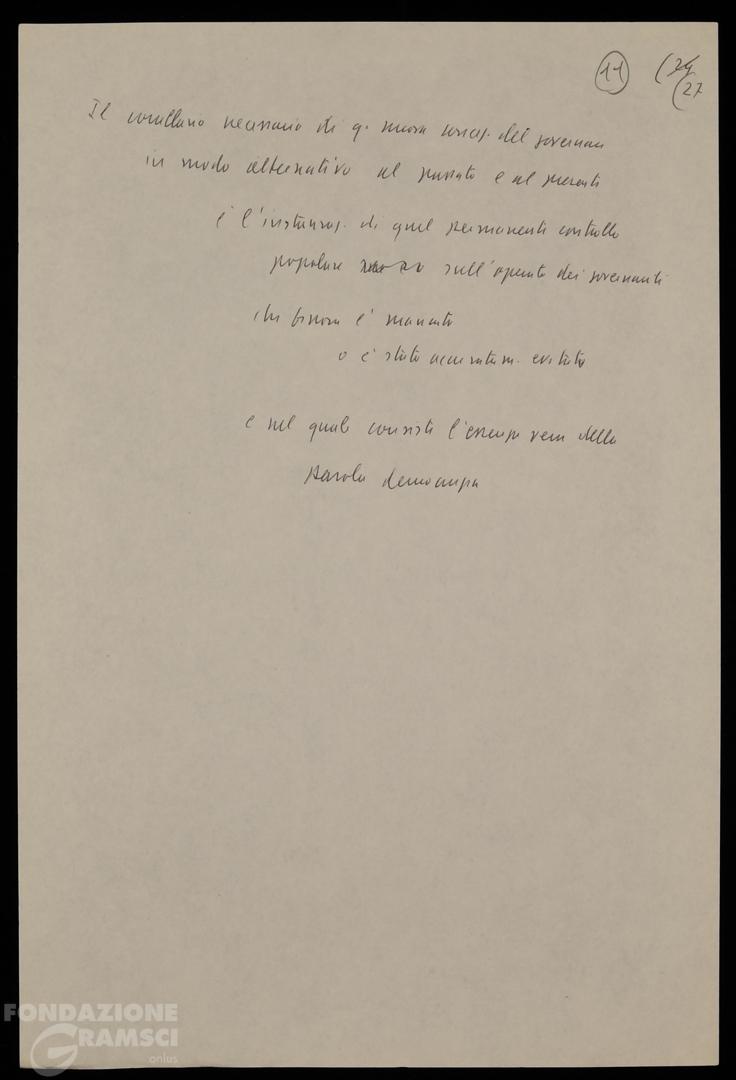 11 (24
(27
Il corollario necessario di q. nuova concez. del governare
in modo alternativo al passato e al presente
è l'instauraz. di quel permanente controllo
popolare sull'operato dei governanti
che finora è mancato
o è stato accuratam. evitato
e nel quale consiste l'essenza vera della
parola democrazia
FONDAZIONE
GRAMSCI
onlus